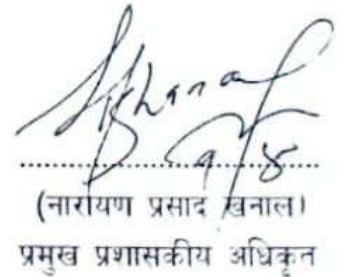 (नारायण प्रसाद खनाल)
प्रमुख प्रशासकीय अधिकृत